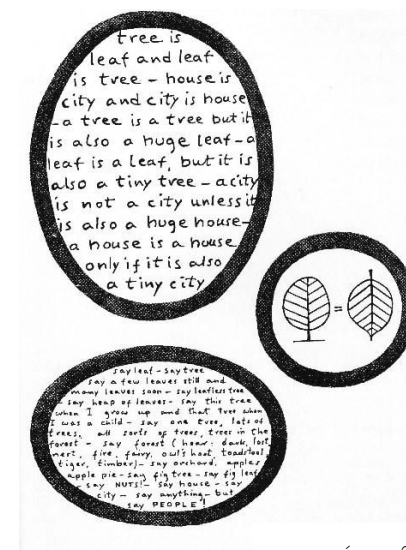 tree is
leaf and leaf
is tree – house is
city and city is house
– a tree is a tree but it
is also a huge leaf – a
leaf is a leaf, but it is
also a tiny tree – a city
is not a city unless it
is also a huge house –
a house is a house
only if it is also
a tiny city
=
say leaf – say tree
say a few leaves still and
many leaves soon – say leafless tree
– say heap of leaves – say this tree
when I grow up and that tree when
I was a child – say one tree, lots of
trees, all sorts of trees, trees in the
forest – say forest ( hear: dark, lost,
nest, fire, fairy, owl's hoot, toadstool,
tiger, timber) – say orchard, apples
apple pie – say fig tree – say fig leaf
– say NUTS! – say house – say
city – say anything – but
say PEOPLE!